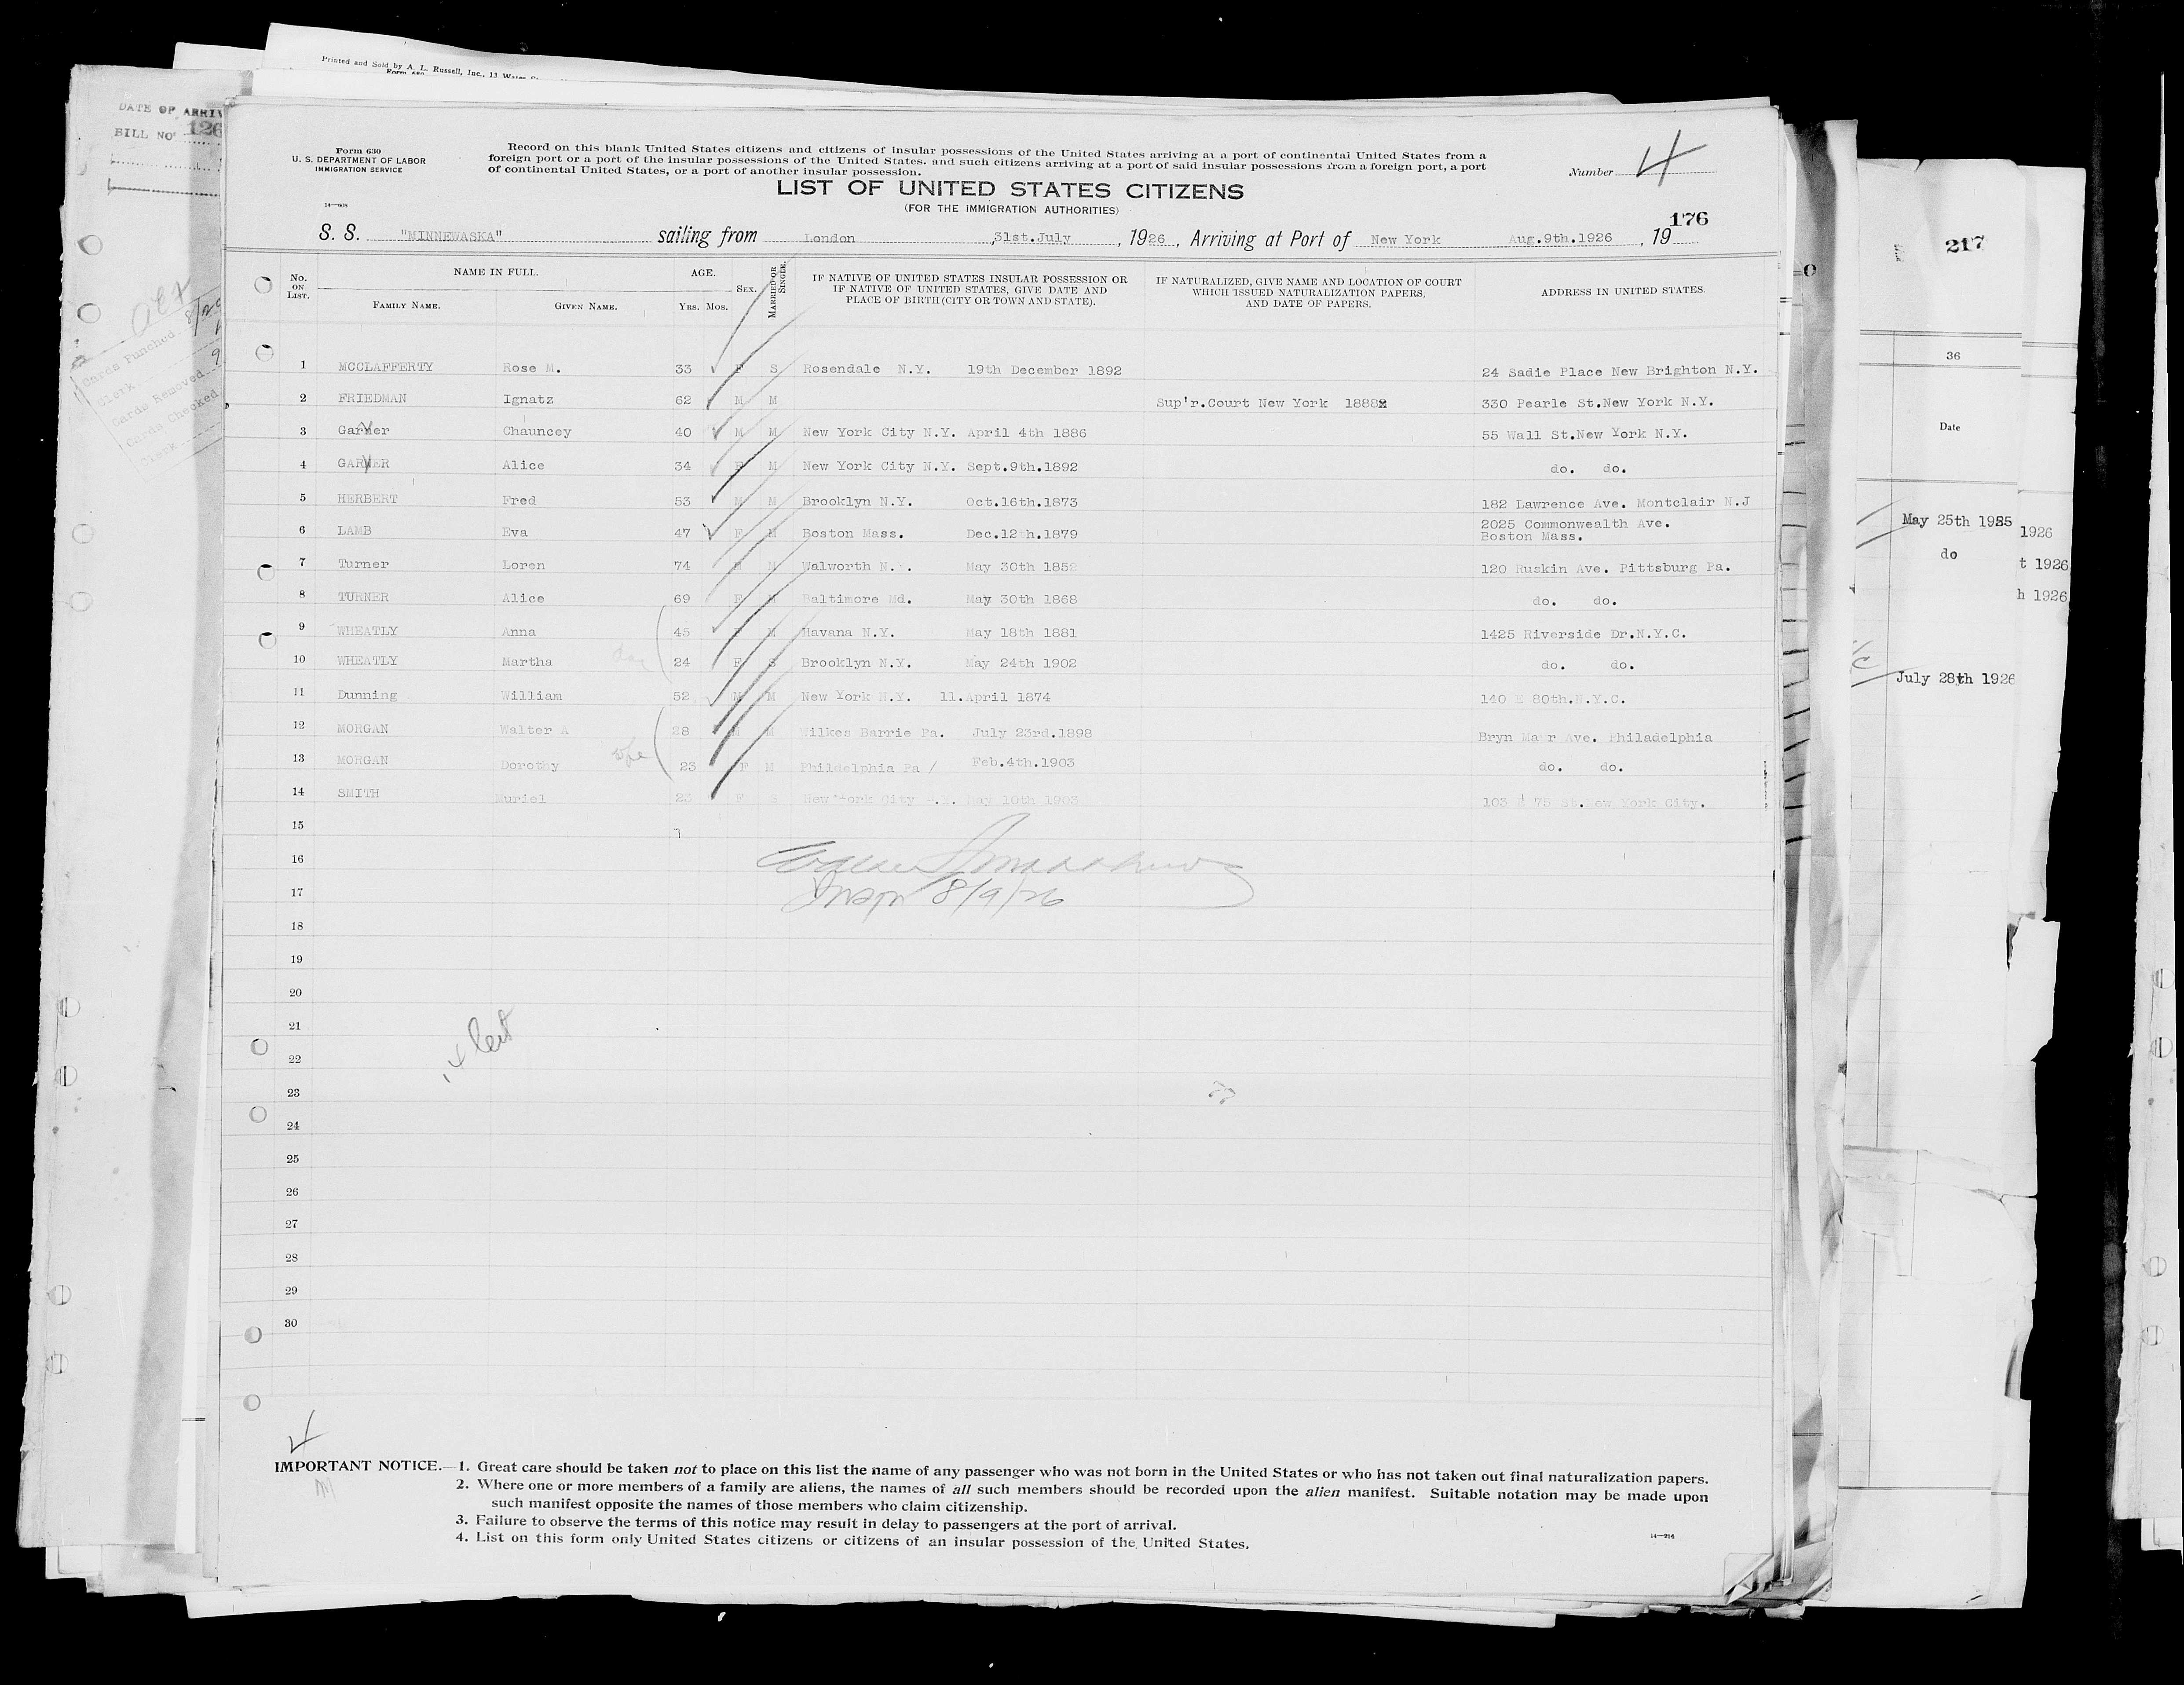 Printed and Sold by A. L. Russell, Inc., 13
DATE OF ARRIV
BILL NO 126
Form 630
U. S. DEPARTMENT OF LABOR
IMMIGRATION SERVICE
Record on this blank United States citizens and citizens of insular possessions of the United States arriving at a port of continental United States from a
foreign port or a port of the insular possessions of the United States, and such citizens arriving at a port of said insular possessions from a foreign port, a port
of continental United States, or a port of another insular possession.
Number 4
LIST OF UNITED STATES CITIZENS
(FOR THE IMMIGRATION AUTHORITIES)
176
S. S. "MINNEWASKA" sailing from London ,31st.July , 1926 , Arriving at Port of New York Aug.9th.1926 , 19
No. ON LIST.
NAME IN FULL.
FAMILY NAME. GIVEN NAME.
AGE.
YRS. MOS.
SEX.
MARRIED OR SINGLE.
IF NATIVE OF UNITED STATES INSULAR POSSESSION OR
IF NATIVE OF UNITED STATES, GIVE DATE AND
PLACE OF BIRTH (CITY OR TOWN AND STATE).
IF NATURALIZED, GIVE NAME AND LOCATION OF COURT
WHICH ISSUED NATURALIZATION PAPERS,
AND DATE OF PAPERS.
ADDRESS IN UNITED STATES.
1 MCCLAFFERTY Rose M. 33 F S Rosendale N.Y. 19th December 1892 24 Sadie Place New Brighton N.Y.
2 FRIEDMAN Ignatz 62 M M Sup'r.Court New York 1888 330 Pearle St.New York N.Y.
3 Garver Chauncey 40 M M New York City N.Y. April 4th 1886 55 Wall St.New York N.Y.
4 GARVER Alice 34 F M New York City N.Y. Sept.9th.1892 do. do.
5 HERBERT Fred 53 M M Brooklyn N.Y. Oct.16th.1873 182 Lawrence Ave. Montclair N.J
6 LAMB Eva 47 F M Boston Mass. Dec.12 h.1879 2025 Commonwealth Ave.
Boston Mass.
7 Turner Loren 74 M M Walworth N. . May 30th 1852 120 Ruskin Ave. Pittsburg Pa.
8 TURNER Alice 69 F M Baltimore Md. May 30th 1868 do. do.
9 WHEATLY Anna 45 F M Havana N.Y. May 18th 1881 1425 Riverside Dr.N.Y.C.
10 WHEATLY Martha dau 24 F S Brooklyn N.Y. May 24th 1902 do. do.
11 Dunning William 52 M M New York N.Y. 11.April 1874 140 E 80th.N.Y.C.
12 MORGAN Walter A 28 M M Wilkes Barrie Pa. July 23rd.1898 Bryn Mawr Ave. Philadelphia
13 MORGAN Dorothy wife 23 F M Philadelphia Pa / Feb.4th.1903 do. do.
14 SMITH Muriel 23 F S New York City N.Y. May 10th 1903 103 E 75 St.New York City.
15
16
17
Insp 8/9/26
18
19
20
21
22
23
24
25
26
27
28
29
30
IMPORTANT NOTICE.—1. Great care should be taken not to place on this list the name of any passenger who was not born in the United States or who has not taken out final naturalization papers.
2. Where one or more members of a family are aliens, the names of all such members should be recorded upon the alien manifest. Suitable notation may be made upon
such manifest opposite the names of those members who claim citizenship.
3. Failure to observe the terms of this notice may result in delay to passengers at the port of arrival.
4. List on this form only United States citizens or citizens of an insular possession of the United States.
Cards Punched
Clerk
Cards Removed
Cards Checked
Clerk
217
36
Date
May 25th 1925
do
July 28th 1926
1926
t 1926
h 1926